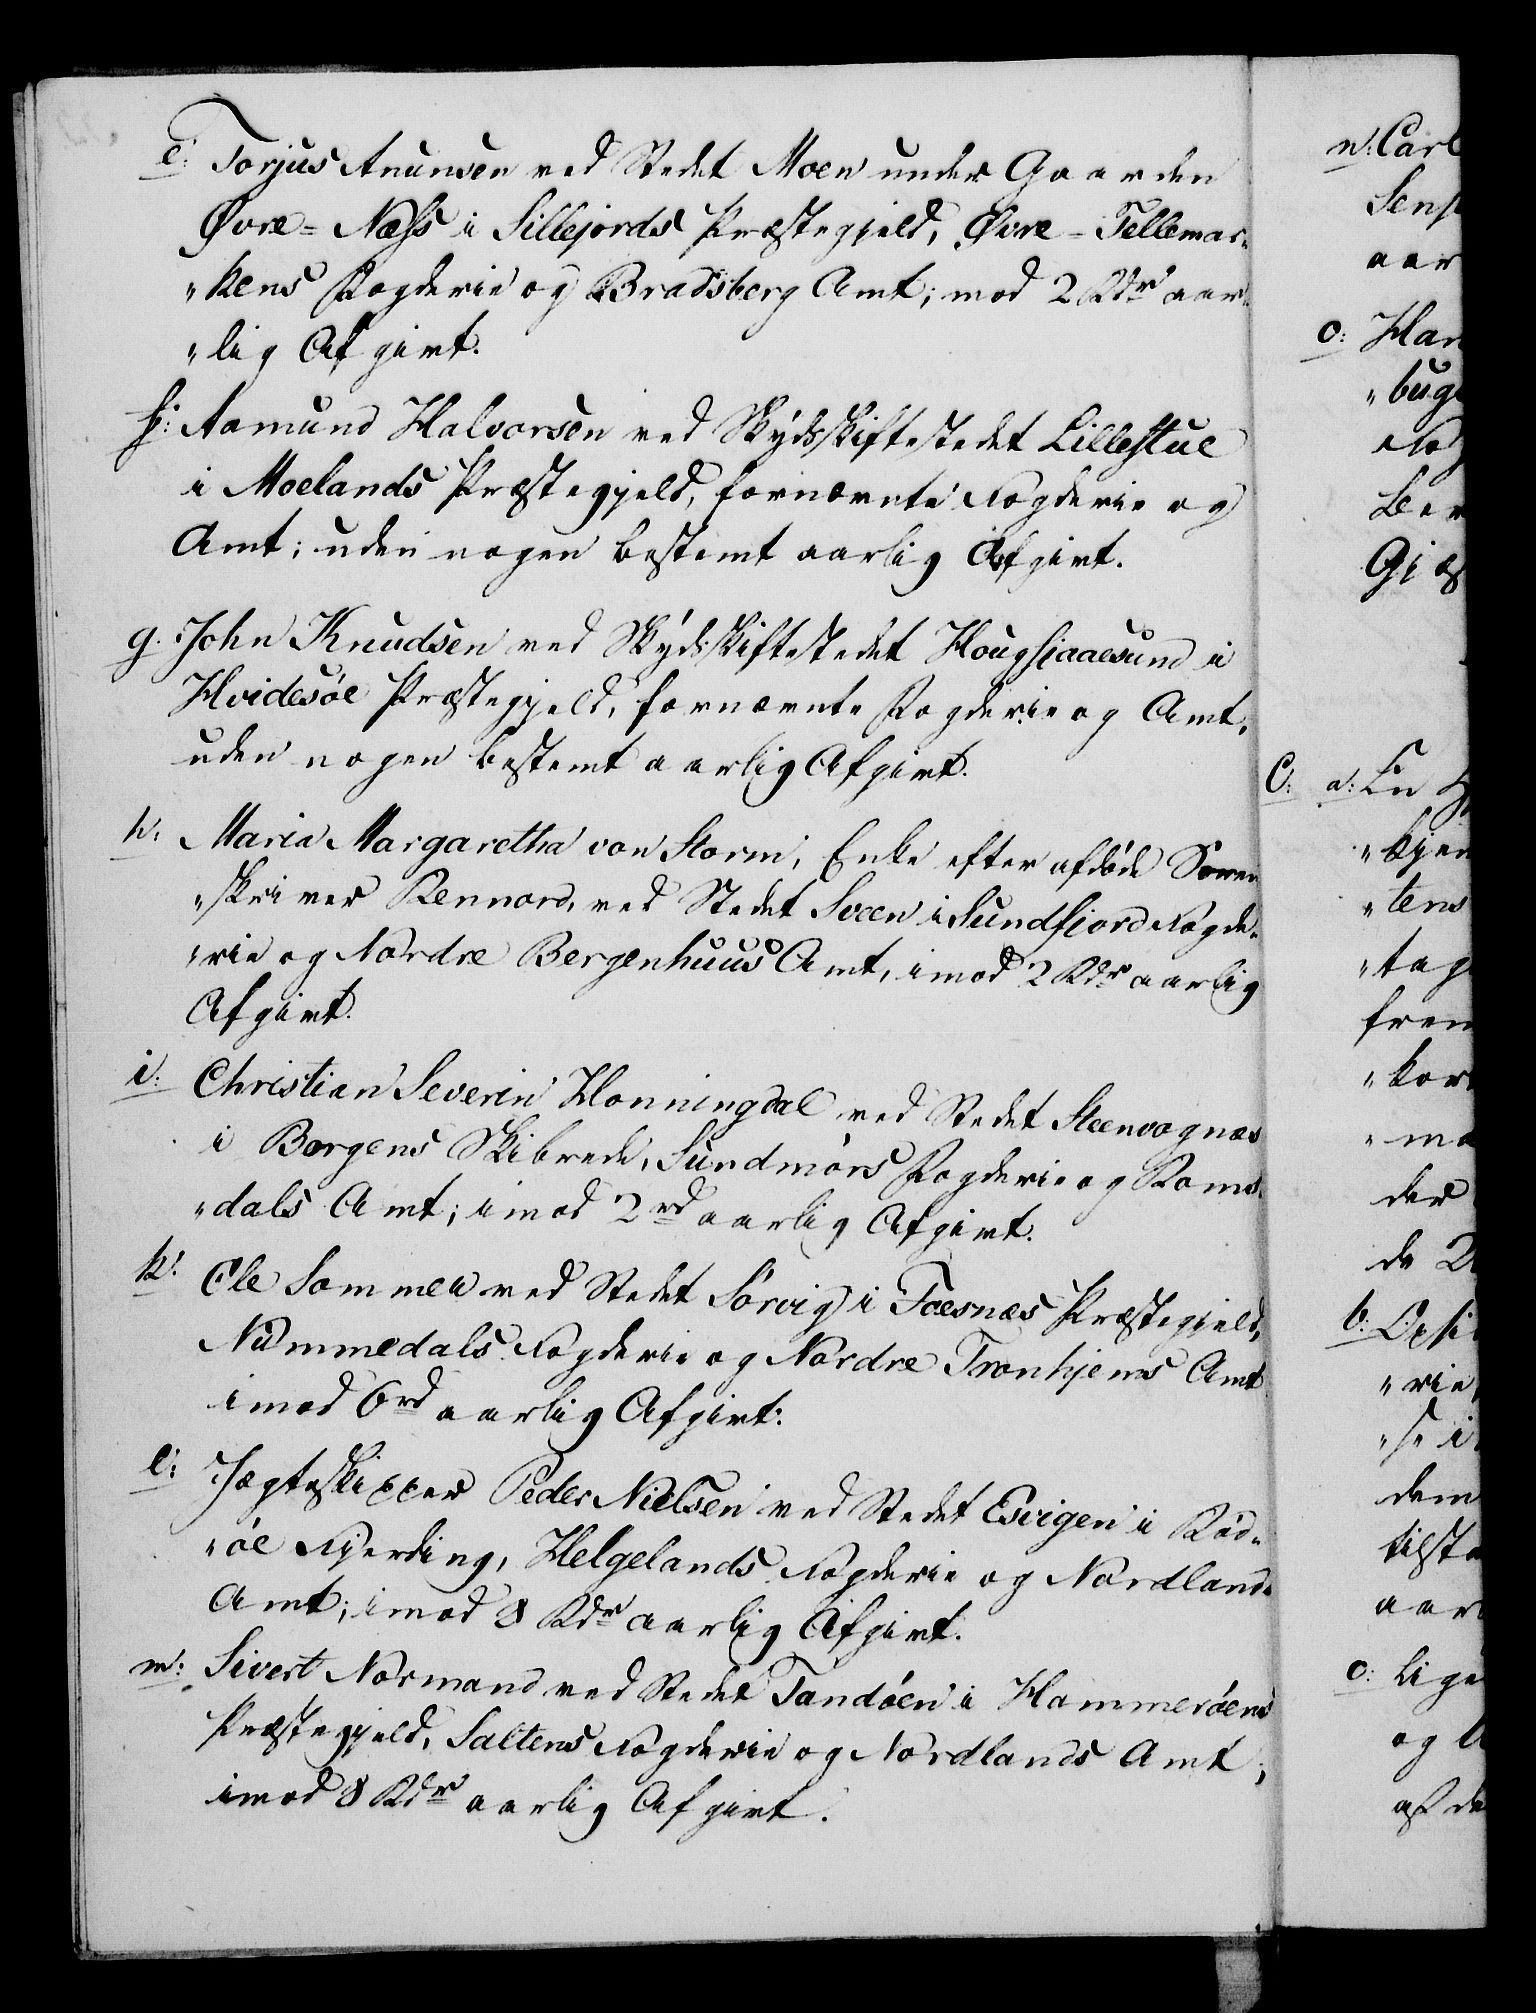 e: Torjus Anunsen ved Stedet Moen under Gaarden
Øvre=Næss i Sillejords Præstegjeld, Øvre=Tellemar„
„kens Fogderie og Bradsberg Amt; mod 2 Rdr aar„
„lig Afgivt.
f: Aamund Halvorsen ved Skydsskiftestedet Lillestue
i Moelands Præstegjeld, fornævnte Fogderie og
Amt; uden nogen bestemt aarlig Afgivt.
g. John Knudsen ved Skydsskiftestedet Hougsiaaesund i
Hvidesøe Præstegjeld, fornævnte Fogderie og Amt,
uden nogen bestemt aarlig Afgivt.
h: Maria Margaretha von Storm, Enke efter afdøde Soren„
„skriver Rennord, ved Stedet Sveen i Sundfjord Fogde„
„rie og Nordre Bergenhuus Amt, imod 2 Rdr aarlig
Afgivt.
i: Christian Severin Honningdal ved Stedet Steenvognæs
i Borgens Skibrede, Sundmørs Fogderie og Roms„
„dals Amt; imod 2rd aarlig Afgivt.
k: Ole Sommer ved Stedet Sørvig i Foesnæs Præstegjeld,
Nummedals Fogderie og Nordre Tronhjems Amt
imod 6rd aarlig Afgivt.
l: Jægteskipper Peder Nielsen ved Stedet Esvigen i Rød„
„øe Fjerding, Helgelands Fogderie og Nordlands
Amt; imod 8 Rdr aarlig Afgivt.
m: Sivert Normand ved Stedet Tandøen i Hammerøens
Præstegjeld, Saltens Fogderie og Nordlands Amt;
imod 8 Rdr aarlig Afgivt.
n: Carl
aar
o: Han
„buge
Ber
C: a: En
„kjen
„tens
„tag
frem
„kor
„ma
der
de
b:
„rie
dem
tilsta
aar
c: lige
og
af de